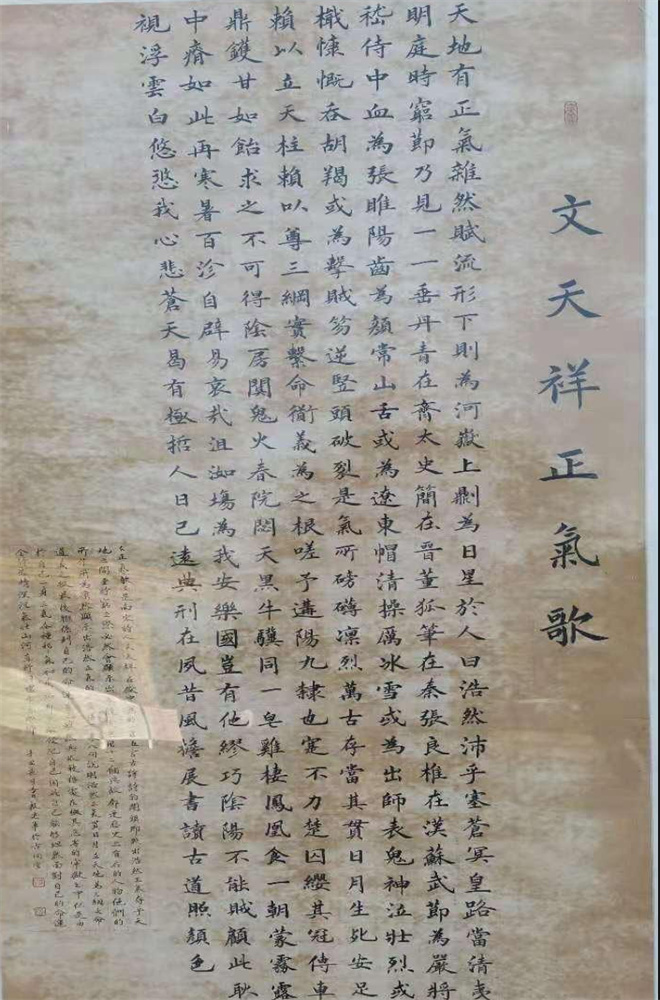 文天祥正氣歌
天地有正氣雜然賦流形下則為河嶽上則為日星於人曰浩然沛乎塞蒼冥皇路當清夷
明庭時窮節乃見一一垂丹青在齊太史簡在晉董狐筆在秦張良椎在漢蘇武節為嚴將
嵇侍中血為張睢陽齒為顏常山舌或為遼東帽清操厲冰雪或為出師表鬼神泣壯烈或
檝慷慨吞胡羯或為擊賊笏逆豎頭破裂是氣所磅礴凜烈萬古存當其貫日月生死安足
賴以立天柱賴以尊三綱實繫命衜義為之根嗟予遘陽九隸也寔不力楚囚纓其冠傳車
鼎鑊甘如飴求之不可得陰房闃鬼火春院閟天黑牛驥同一皂雞棲鳳凰食一朝蒙霧露
中瘠如此再寒暑百沴自辟易哀哉沮洳塲為我安樂國豈有他繆巧陰陽不能賊顧此耿
視浮雲白悠悠我心悲蒼天曷有極哲人日已遠典刑在夙昔風檐展書讀古道照顏色